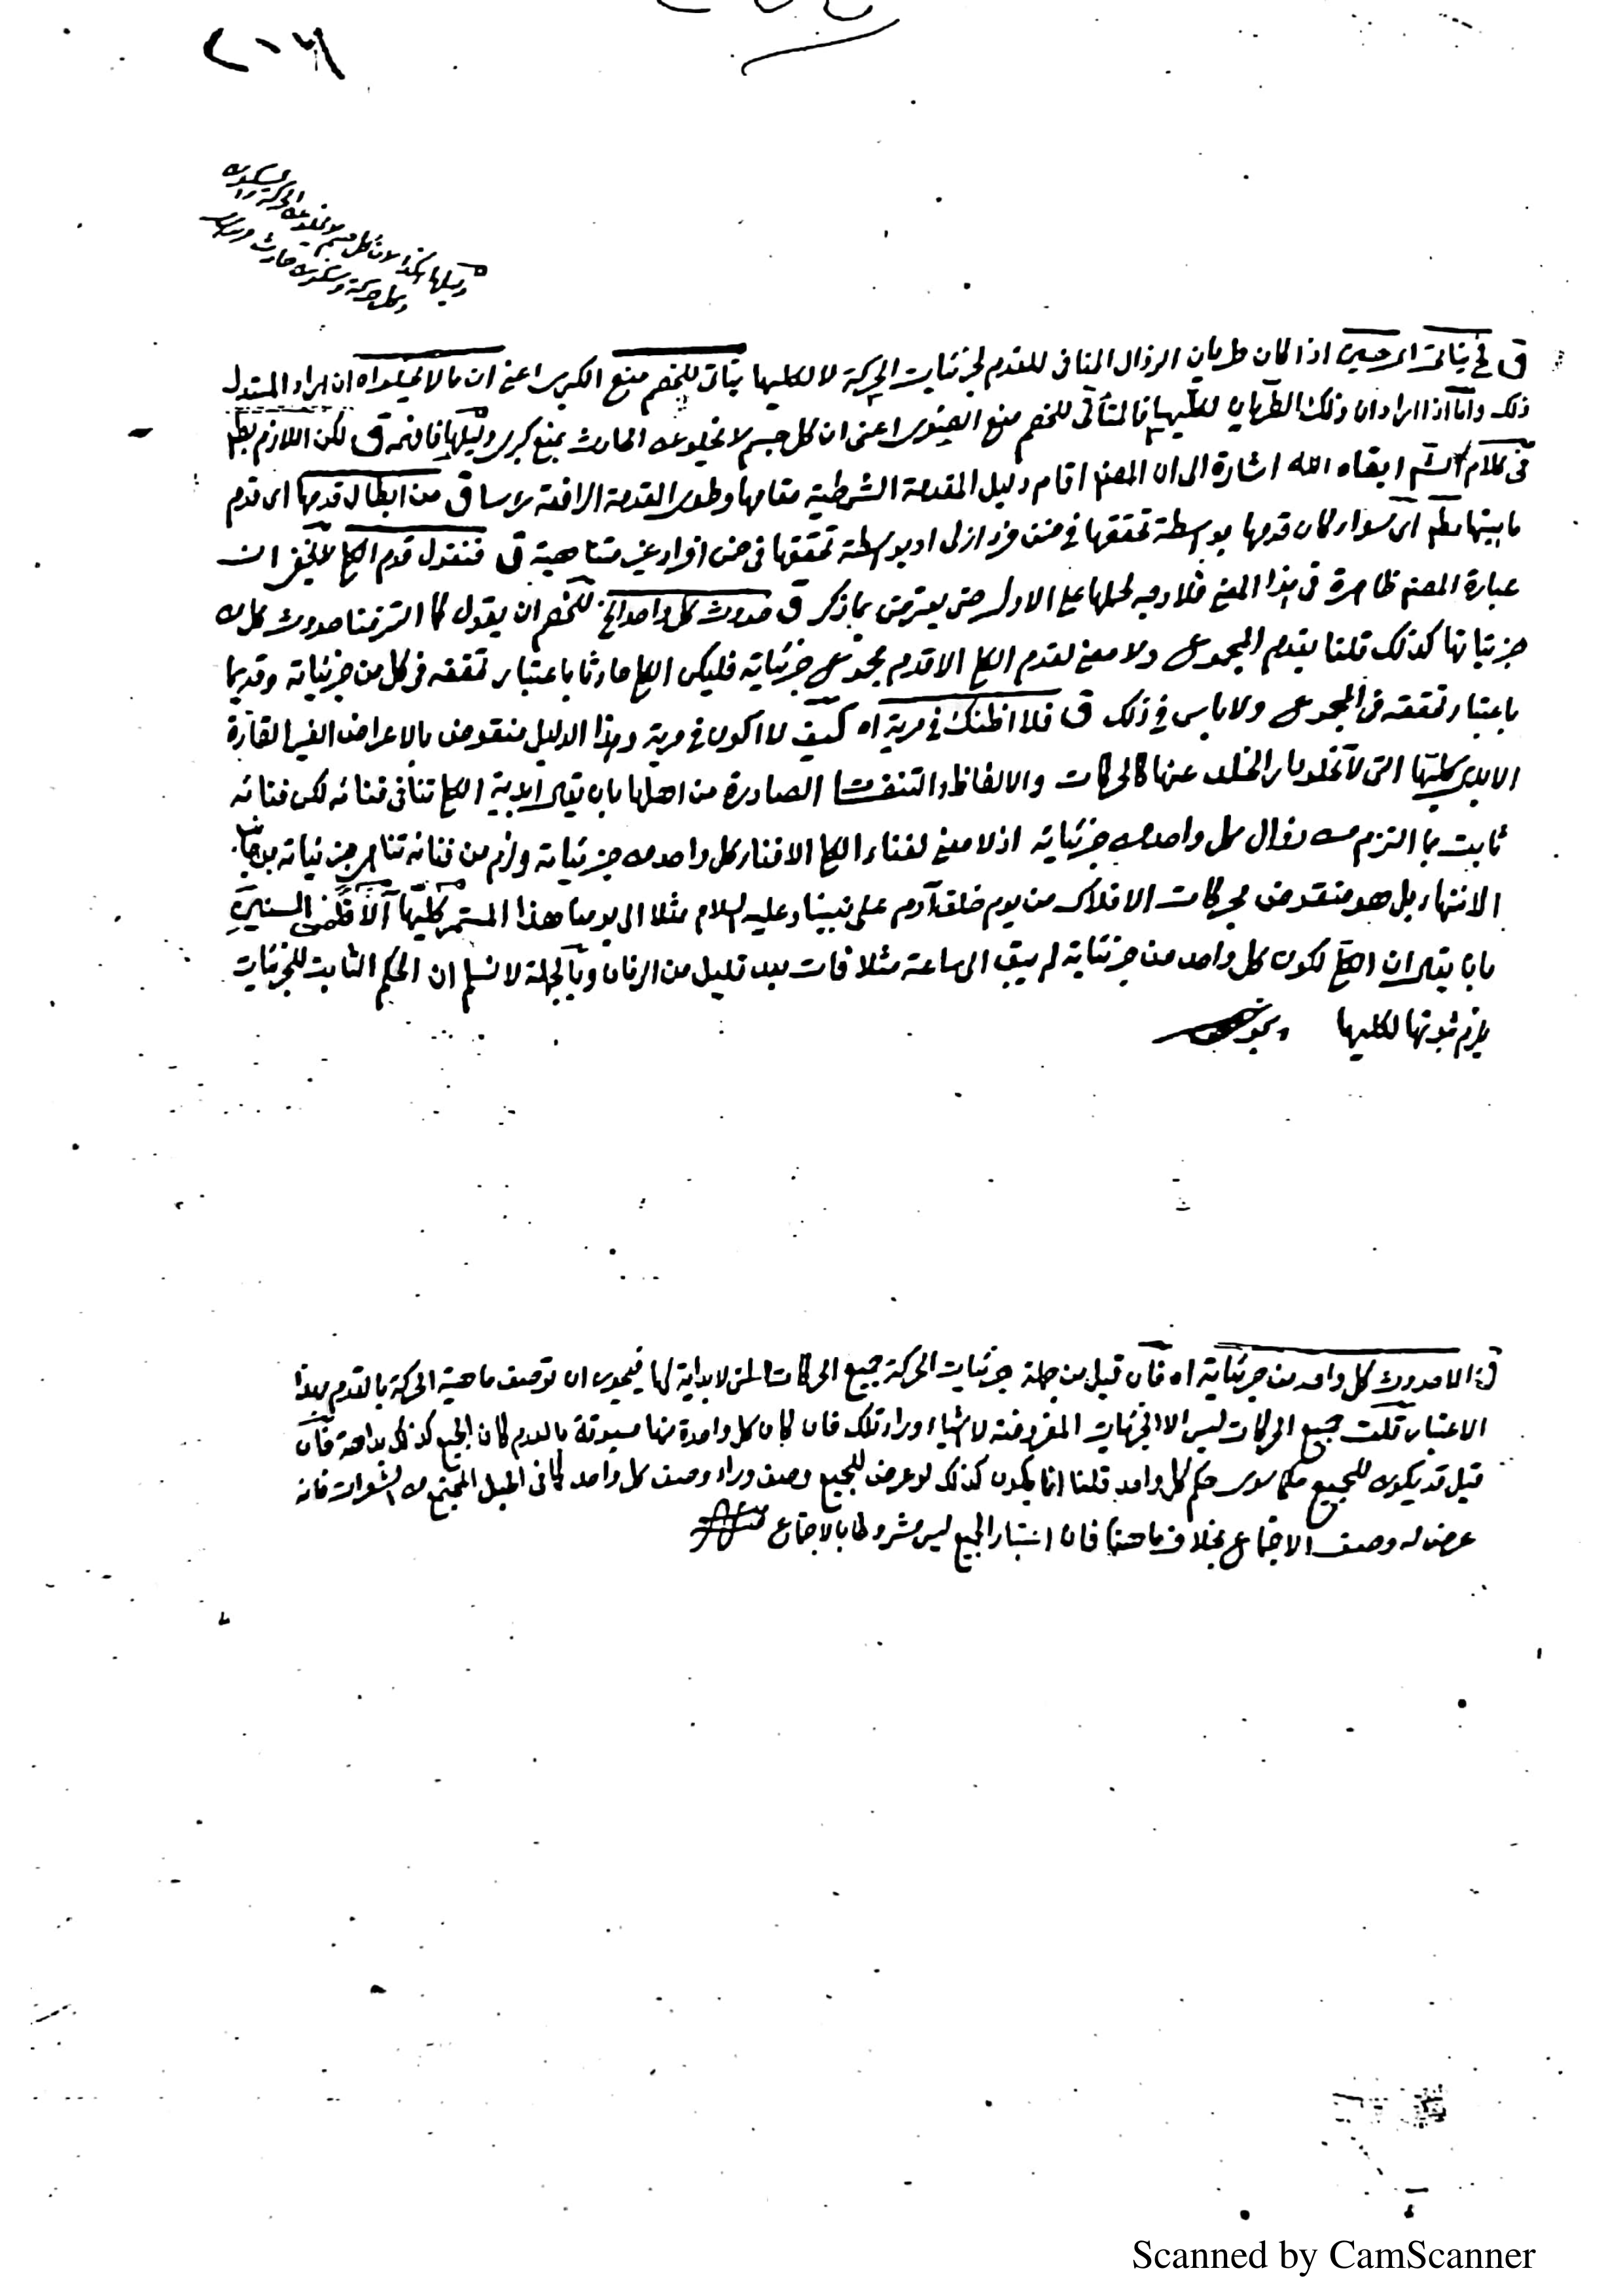 ٢٠٦
ودليلها هكذا لان كل جسم لا يخلو عن الحركة والسكون
وكل حركة وسكون حادث
ق فيتأتى اى حين اذا كان طريان الزوال المنافى للقدم لجزئيات الحركة لا لكليها يتأتى للخصم منع الكبرى اعنى ان ما لا يخلو اه ان اراد المستدل
ذلك واما اذا اراد ان ذلك الطريان لكليها فالمتأتى للخصم منع الصغرى اعنى ان كل جسم لا يخلو عن الحادث بمنع كبرى دليلها فافهم ق لكن اللازم بط
فى كلام ابقاه الله اشارة الى ان المصنف اقام دليل المقدمة الشرطية مقامها وطوى المقدمة الرافعة ق من ابطال قدمها اى قدم
ماهيتها مط اى سواء كان قدمها بواسطة تحققها فى ضمن فرد ازلى او بواسطة تحققها فى ضمن افراد غير متناهية ق فنقول قدم الكلى لا يخفى ان
عبارة المصنف ظاهرة فى هذا المعنى فلا وجه لحملها على الاول حتى يعترض بما ذكر ق حدوث كل واحد الخ للخصم ان يقول كما التزمنا حدوث كل من
جزئياتها كذلك قلنا بقدم المجموع ولا معنى لقدم الكلى الا قدم مجموع جزئياته فليكن الكلى حادثا باعتبار تحققه فى كل من جزئياته وقديما
باعتبار تحققه فى المجموع ولا باس فى ذلك ق فلا اظنك فى مرية اه كيف لا اكون فى مرية وهذا الدليل منقوض بالاعراض الغير القارة
الابدى كليتها التى لا تخلو دار الخلد عنها كالحركات والالفاظ والتنفسات الصادرة من اهلها بان يقال ابدية الكلى تنافى فنائه لكن فنائه
ثابت بما التزم من زوال كل واحد من جزئياته اذ لا معنى لفناء الكلى الا فناء كل واحد من جزئياته ولزم من فنائه تناهى جزئياته
الانتهاء بل هو منقوض بحركات الافلاك من يوم خلق آدم على نبينا وعليه السلام مثلا الى يومنا هذا المستمر كليها السنين
بان يقال ان الكلى لكون كل واحد من جزئياته لم يبق الى ساعة مثلا فات بعد قليل من الزمان وبالجملة لا نسلم ان الحكم الثابت للجزئيات
يلزم ثبوتها لكليها
ق الا حدوث كل واحد من جزئياته اه فان قيل من جملة جزئيات الحركة جميع الحركات التى لا بداية لها فيجوز ان توصف ماهية الحركة بالقدم بهذا
الاعتبار قلت جميع الحركات ليس الا الجزئيات المفروضة لا شيئا وراء تلك فان كان كل واحدة منها مسبوقة بالعدم كان الجميع كذلك بداهة فان
قيل قد يكون للجميع حكم سوى حكم كل واحد قلنا انما يكون كذلك لو عرض للجميع وصف وراء وصف كل واحد كما فى الحبل المجتمع من الشعرات فانه
عرض له وصف الاجتماع بخلاف ما هنا فان اعتبار الجميع ليس مشروطا بالاجتماع
Scanned by CamScanner